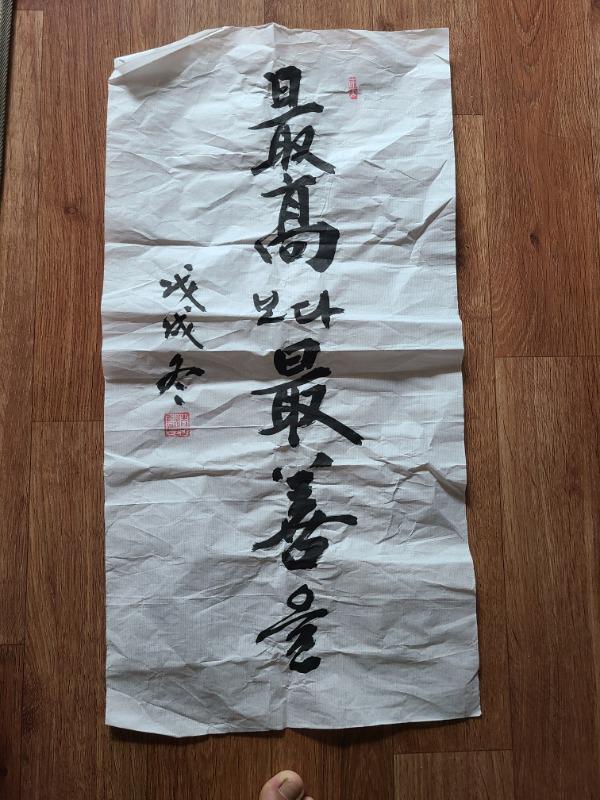 最高보다最善을
戊戌冬